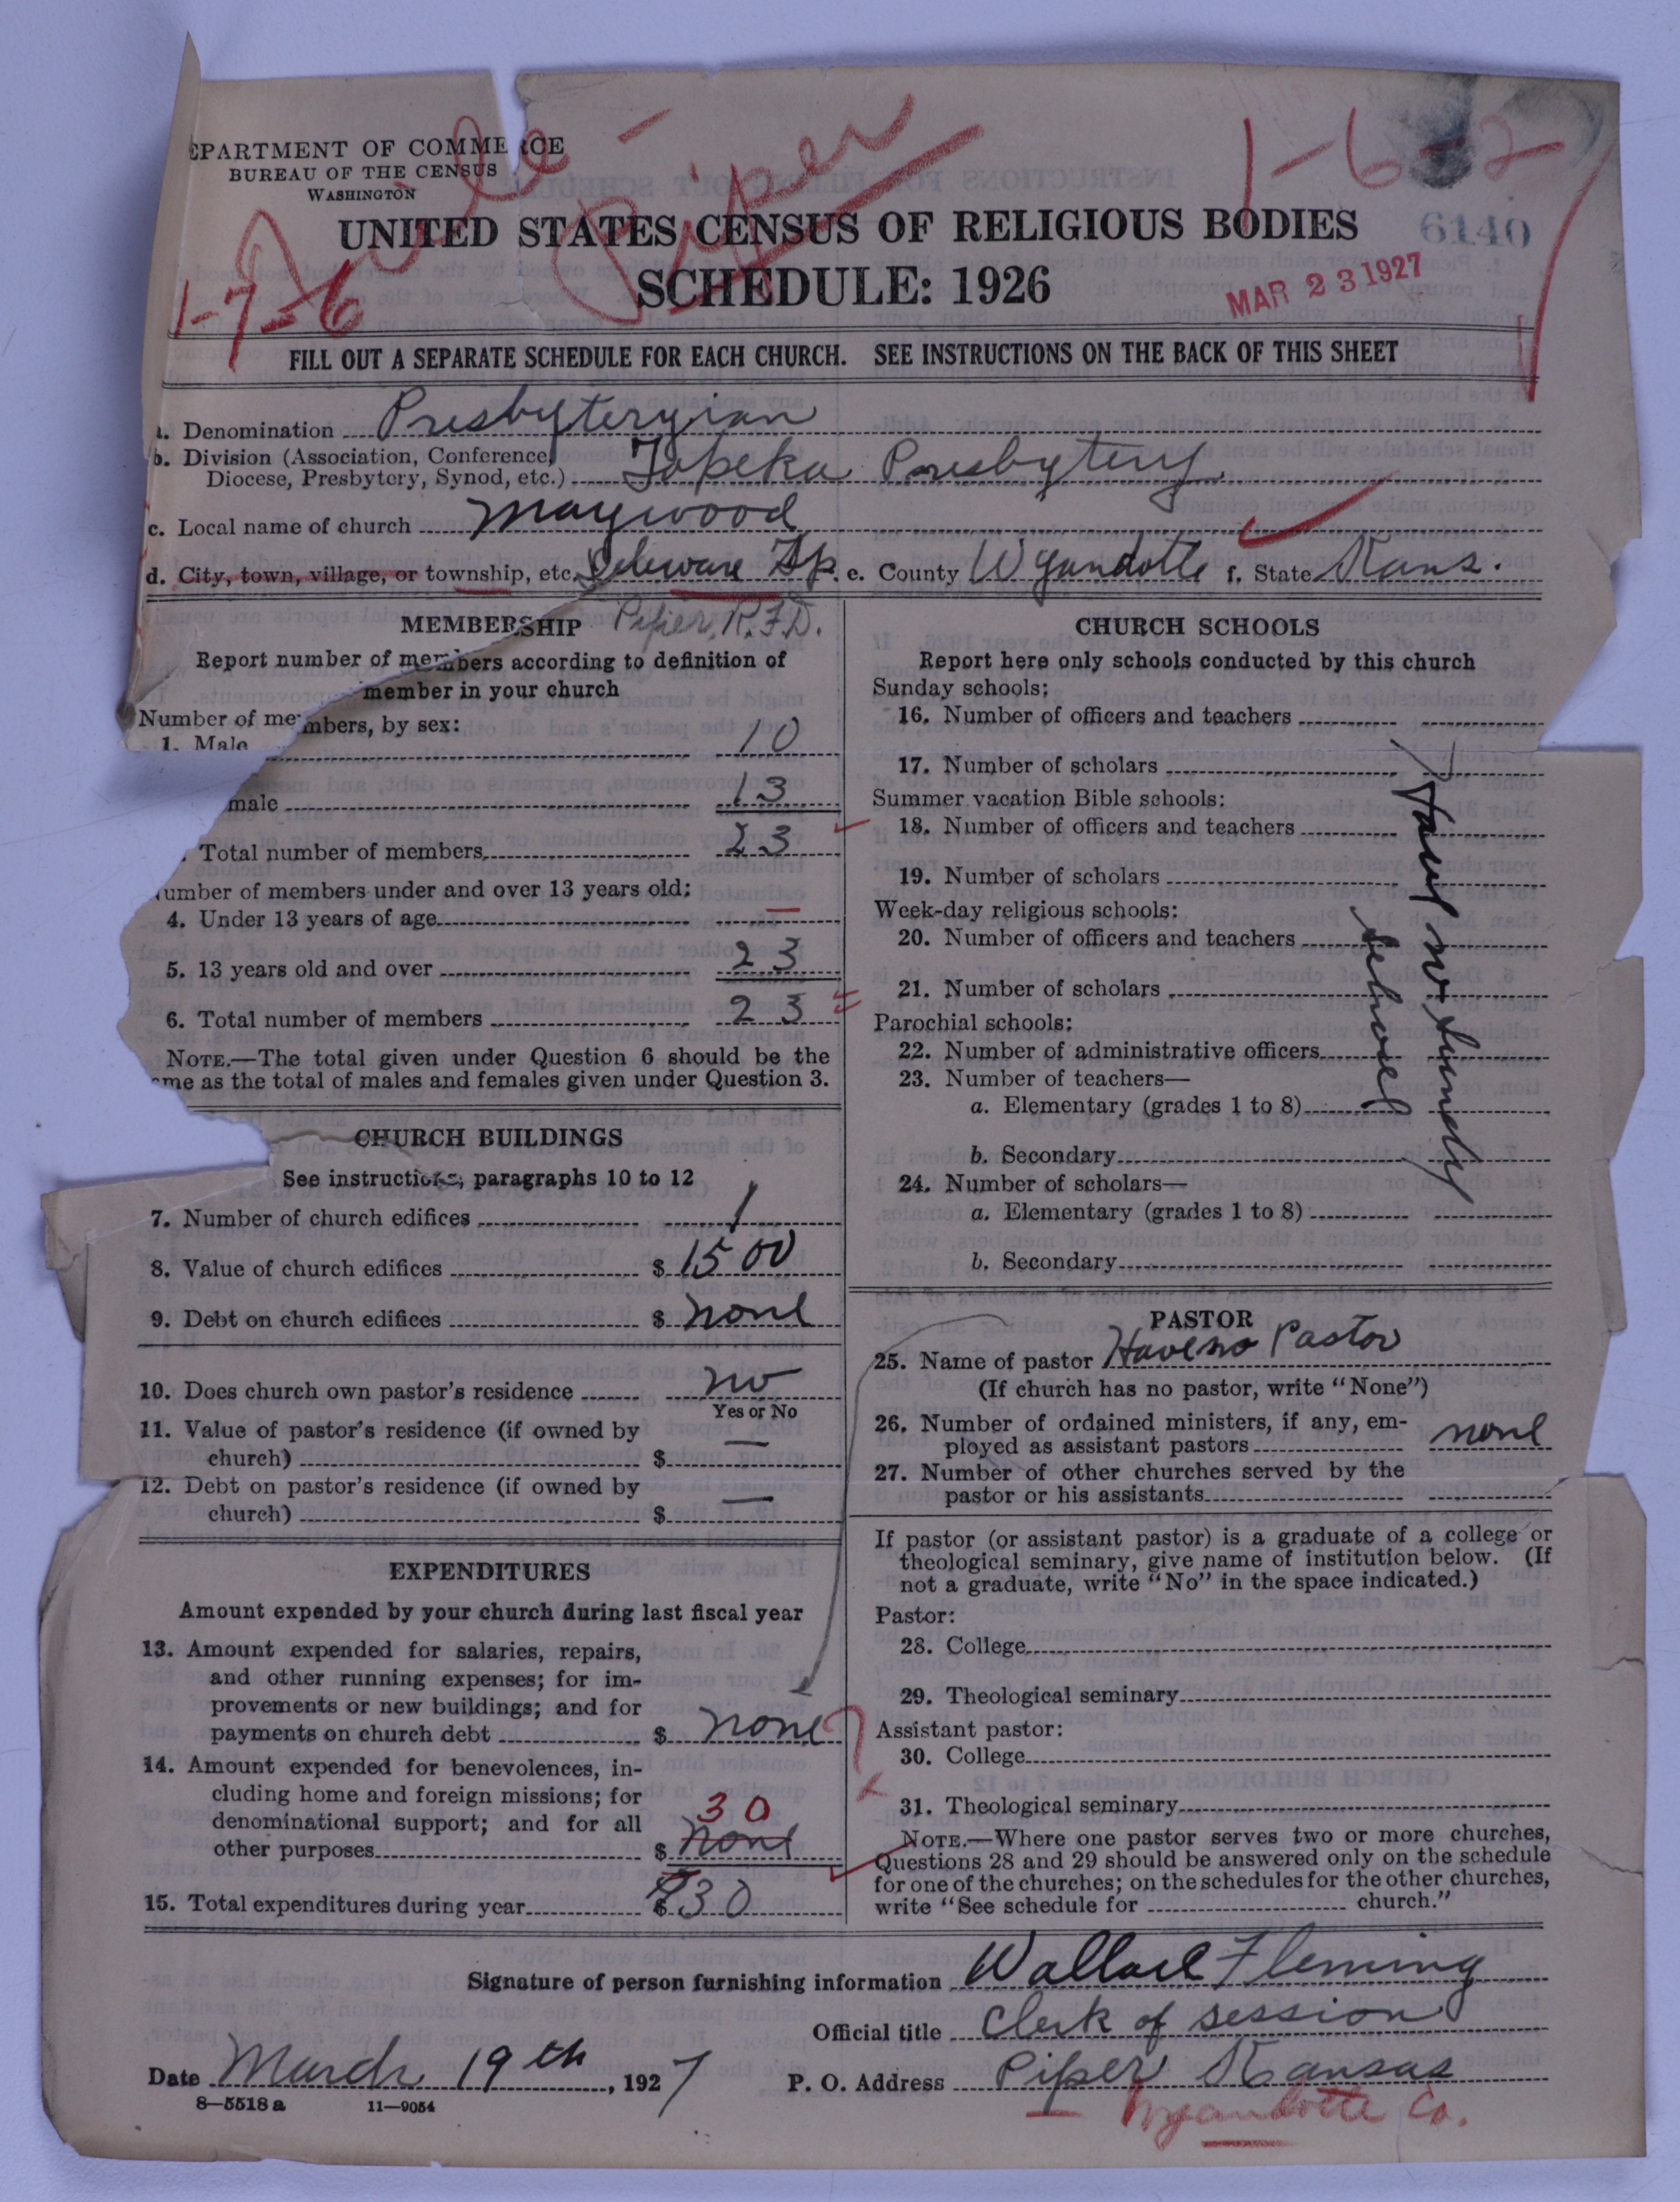 EPARTMENT OF COMMERCE
BUREAU OF THE CENSUS
WASHINGTON
Piper
1-6-2
UNITED STATES CENSUS OF RELIGIOUS BODIES
6140
SCHEDULE: 1926
MAR 23 1927
1-7-6
FILL OUT A SEPARATE SCHEDULE FOR EACH CHURCH. SEE INSTRUCTIONS ON THE BACK OF THIS SHEET
a. Denomination Presbyteryian
b. Division (Association, Conference,
Diocese, Presbytery, Synod, etc.) Topeka Presbytery
c. Local name of church Maywood
d. City, town, village, or township, etc. Deleware Tp. e. County Wyandotte f. State Kans.
Piper, R.F.D.
MEMBERSHIP
Report number of members according to definition of
member in your church
Number of members, by sex:
1. Male 10
male 13
. Total number of members 23
umber of members under and over 13 years old:
4. Under 13 years of age —
5. 13 years old and over 23
6. Total number of members 23
NOTE.—The total given under Question 6 should be the
me as the total of males and females given under Question 3.
CHURCH BUILDINGS
See instructions, paragraphs 10 to 12
7. Number of church edifices 1
8. Value of church edifices $ 1500
9. Debt on church edifices $ none
10. Does church own pastor's residence no
Yes or No
11. Value of pastor's residence (if owned by
church) $ —
12. Debt on pastor's residence (if owned by
church) $ —
EXPENDITURES
Amount expended by your church during last fiscal year
13. Amount expended for salaries, repairs,
and other running expenses; for im-
provements or new buildings; and for
payments on church debt $ none
14. Amount expended for benevolences, in-
cluding home and foreign missions; for
denominational support; and for all
30
other purposes $ none
15. Total expenditures during year $ 30
CHURCH SCHOOLS
Report here only schools conducted by this church
Sunday schools:
16. Number of officers and teachers
17. Number of scholars
Summer vacation Bible schools:
18. Number of officers and teachers
19. Number of scholars
Week-day religious schools:
20. Number of officers and teachers
21. Number of scholars
Parochial schools:
22. Number of administrative officers
23. Number of teachers—
a. Elementary (grades 1 to 8)
b. Secondary
24. Number of scholars—
a. Elementary (grades 1 to 8)
b. Secondary
Have no Sundy
School
PASTOR
25. Name of pastor Have no Pastor
(If church has no pastor, write "None")
26. Number of ordained ministers, if any, em-
ployed as assistant pastors none
27. Number of other churches served by the
pastor or his assistants
If pastor (or assistant pastor) is a graduate of a college or
theological seminary, give name of institution below. (If
not a graduate, write "No" in the space indicated.)
Pastor:
28. College
29. Theological seminary
Assistant pastor:
30. College
31. Theological seminary
NOTE.—Where one pastor serves two or more churches,
Questions 28 and 29 should be answered only on the schedule
for one of the churches; on the schedules for the other churches,
write "See schedule for church."
Signature of person furnishing information Wallace Fleming
Official title Clerk of session
Date March 19th, 1927
P. O. Address Piper Kansas
Wyandotte Co.
8—5518a 11—9054